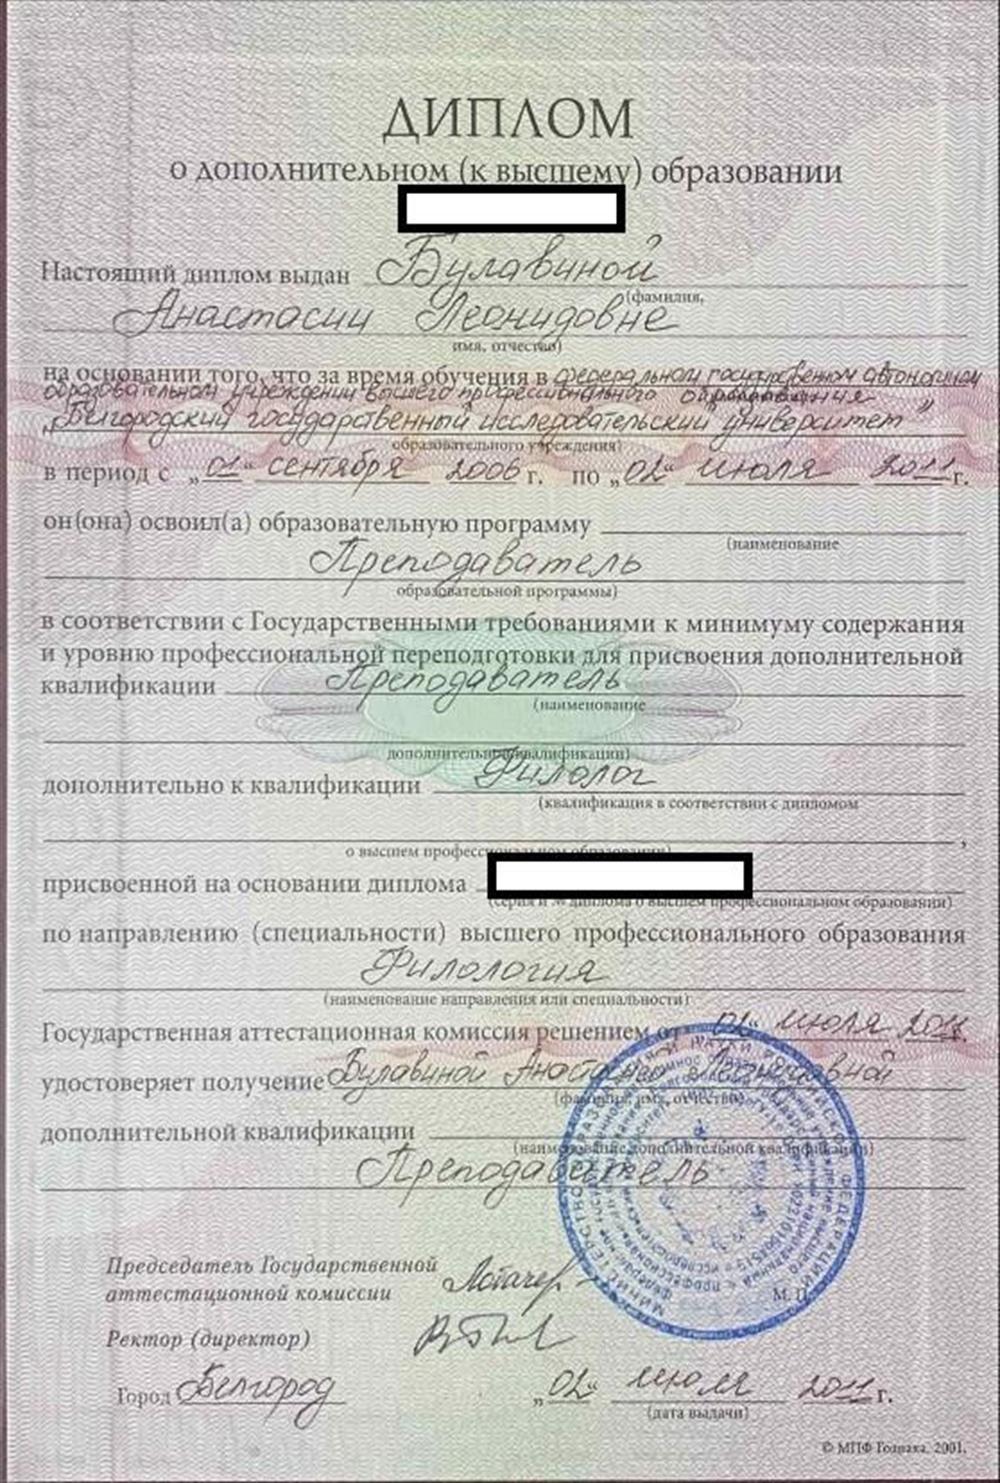 ДИПЛОМ
о дополнительном (к высшему) образовании
Настоящий диплом выдан Булавиной
(фамилия,
Анастасии Леонидовне
имя, отчество)
на основании того, что за время обучения в федеральном государственном автономном
образовательном учреждении высшего профессионального образования
„Белгородский государственный исследовательский университет"
образовательного учреждения)
в период с „01" сентября 2006 г. по „02" июля 2011 г.
он(она) освоил(а) образовательную программу
(наименование
Преподаватель
образовательной программы)
в соответствии с Государственными требованиями к минимуму содержания
и уровню профессиональной переподготовки для присвоения дополнительной
квалификации Преподаватель
(наименование
дополнительной квалификации)
дополнительно к квалификации Филолог
(квалификация в соответствии с дипломом
о высшем профессиональном образовании)
,
присвоенной на основании диплома
(серия и № диплома о высшем профессиональном образовании)
по направлению (специальности) высшего профессионального образования
Филология
(наименование направления или специальности)
Государственная аттестационная комиссия решением от „02" июля 2011.
удостоверяет получение Булавиной Анастасией Леонидовной
(фамилия, имя, отчество)
дополнительной квалификации
(наименование дополнительной квалификации)
Преподаватель
Председатель Государственной
аттестационной комиссии
М. П.
Ректор (директор)
Город Белгород „02" июля 2011 г.
(дата выдачи)
© МПФ Гознака, 2001.